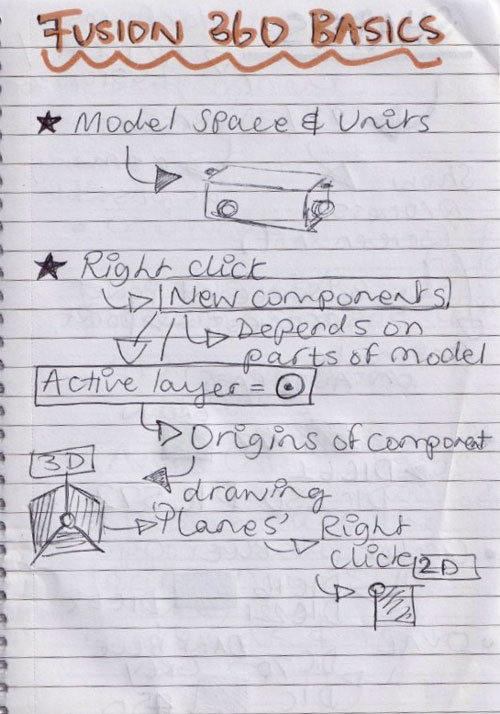 FUSION 360 BASICS
★ Model Space & Units
★ Right click
New components
Depends on
parts of model
Active layer = ⊙
Origins of component
3D
drawing
'Planes'
Right
click
2D